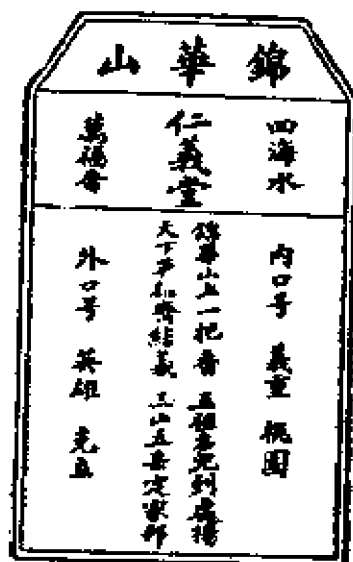 錦華山
四海水
仁義堂
萬福香
内口号 義重 桃園
錦華山上一把香 五祖名兒到處揚
天下結義 三山五岳定家邦
外口号 英雄 克立